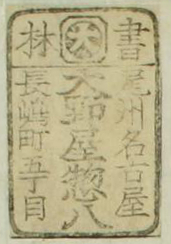 書林
尾州名古屋
大野屋惣八
長嶋町五丁目